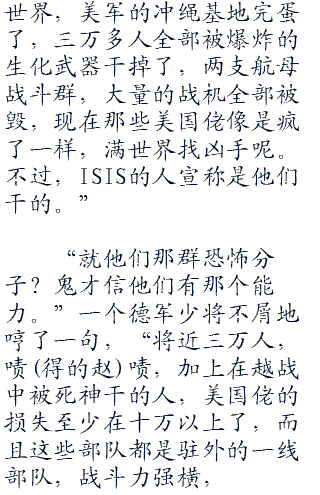 世界，美军的冲绳基地完蛋
了，三万多人全部被爆炸的
生化武器干掉了，两支航母
战斗群，大量的战机全部被
毁，现在那些美国佬像是疯
了一样，满世界找凶手呢。
不过，ISIS的人宣称是他们
干的。”
“就他们那群恐怖分
子？鬼才信他们有那个能
力。”一个德军少将不屑地
哼了一句，“将近三万人，
啧(得的赵)啧，加上在越战
中被死神干的人，美国佬的
损失至少在十万以上了，而
且这些部队都是驻外的一线
部队，战斗力强横，